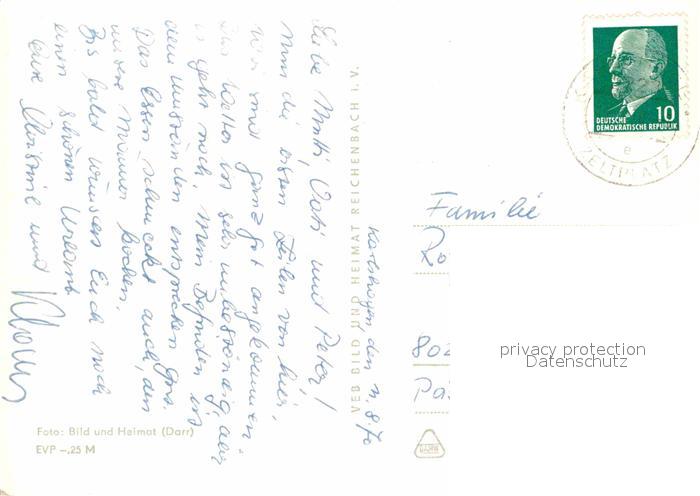 Karlshagen, den 11.8.70
Liebe Mutti, Vati und Peter!
Nun die ersten Zeilen von hier,
wir sind ganz gut angekommen.
Das Wetter ist sehr unbeständig, aber
es geht noch. Mein Befinden ist
den Umständen entsprechen gut.
Das Essen schmeckt auch, den
unsere Männer kochen.
Bis bald wünschen Euch noch
einen schönen Urlaub
Eure Christine und Klaus
VEB BILD UND HEIMAT REICHENBACH I. V.
Foto: Bild und Heimat (Darr)
EVP –,25 M
10
DEUTSCHE
DEMOKRATISCHE REPUBLIK
e
ZELTPLATZ
Familie
Ro
802
Pa
privacy protection
Datenschutz